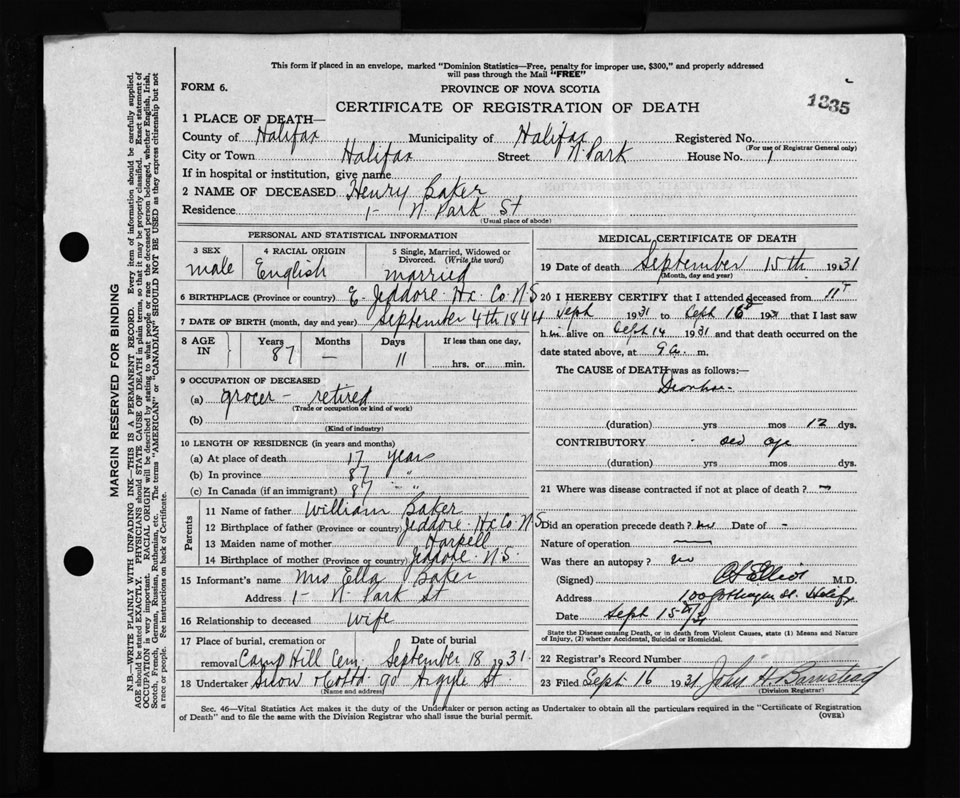 This form if placed in an envelope, marked "Dominion Statistics—Free, penalty for improper use, $300," and properly addressed
will pass through the Mail "FREE"
FORM 6.
PROVINCE OF NOVA SCOTIA
1835
CERTIFICATE OF REGISTRATION OF DEATH
1 PLACE OF DEATH—
County of Halifax Municipality of Halifax Registered No.
(For use of Registrar General only)
City or Town Halifax Street N. Park House No. 1
If in hospital or institution, give name
2 NAME OF DECEASED Henry Baker
Residence 1 - N. Park St
(Usual place of abode)
PERSONAL AND STATISTICAL INFORMATION
3 SEX 4 RACIAL ORIGIN 5 Single, Married, Widowed or
Divorced. (Write the word)
male English married
6 BIRTHPLACE (Province or country) E. Jeddore Hx. Co. N.S
7 DATE OF BIRTH (month, day and year) September 4th 1844
8 AGE IN Years Months Days If less than one day,
87 — 11 hrs. or min.
9 OCCUPATION OF DECEASED
(a) grocer - retired
(Trade or occupation or kind of work)
(b)
(Kind of industry)
10 LENGTH OF RESIDENCE (in years and months)
(a) At place of death 17 years
(b) In province 87 "
(c) In Canada (if an immigrant) 87 " "
Parents
11 Name of father William Baker
12 Birthplace of father (Province or country) Jeddore Hx Co. N.S
13 Maiden name of mother Harpell
14 Birthplace of mother (Province or country) Jeddore N.S.
15 Informant's name Mrs Ella Baker
Address 1 - N. Park St
16 Relationship to deceased wife
17 Place of burial, cremation or Date of burial
removal Camp Hill Cem. September 18 1931.
18 Undertaker Snow & Co Ltd 90 Argyle St.
(Name and address)
MEDICAL CERTIFICATE OF DEATH
19 Date of death September 15th 1931
(Month, day and year)
20 I HEREBY CERTIFY that I attended deceased from 11
Sept 1931 to Sept 1931 that I last saw
h im alive on Sept 14 1931 and that death occurred on the
date stated above, at 9 a. m.
The CAUSE of DEATH was as follows:—
(duration) yrs mos 12 dys.
CONTRIBUTORY old age
(duration) yrs. mos. dys.
21 Where was disease contracted if not at place of death? —
Did an operation precede death? no Date of -
Nature of operation —
Was there an autopsy? no
(Signed) Elliot M.D.
Address
Date Sept 15th/31
State the Disease causing Death, or in death from Violent Causes, state (1) Means and Nature
of Injury, (2) whether Accidental, Suicidal or Homicidal.
22 Registrar's Record Number
23 Filed Sept 16 1931 John H. Barnstead
(Division Registrar)
Sec. 46—Vital Statistics Act makes it the duty of the Undertaker or person acting as Undertaker to obtain all the particulars required in the "Certificate of Registration
of Death" and to file the same with the Division Registrar who shall issue the burial permit.
(OVER)
MARGIN RESERVED FOR BINDING
N.B.—WRITE PLAINLY WITH UNFADING INK—THIS IS A PERMANENT RECORD. Every item of information should be carefully supplied.
AGE should be stated EXACTLY. PHYSICIANS should STATE CAUSE OF DEATH in plain terms, so that it may be properly classified. Exact statement of
OCCUPATION is very important. RACIAL ORIGIN will be described by stating to what people or race the deceased person belonged, whether English, Irish,
Scotch, French, German, Russian, Ruthenian, etc. The terms "AMERICAN" or "CANADIAN" SHOULD NOT BE USED as they express citizenship but not
a race or people. See instructions on back of Certificate.